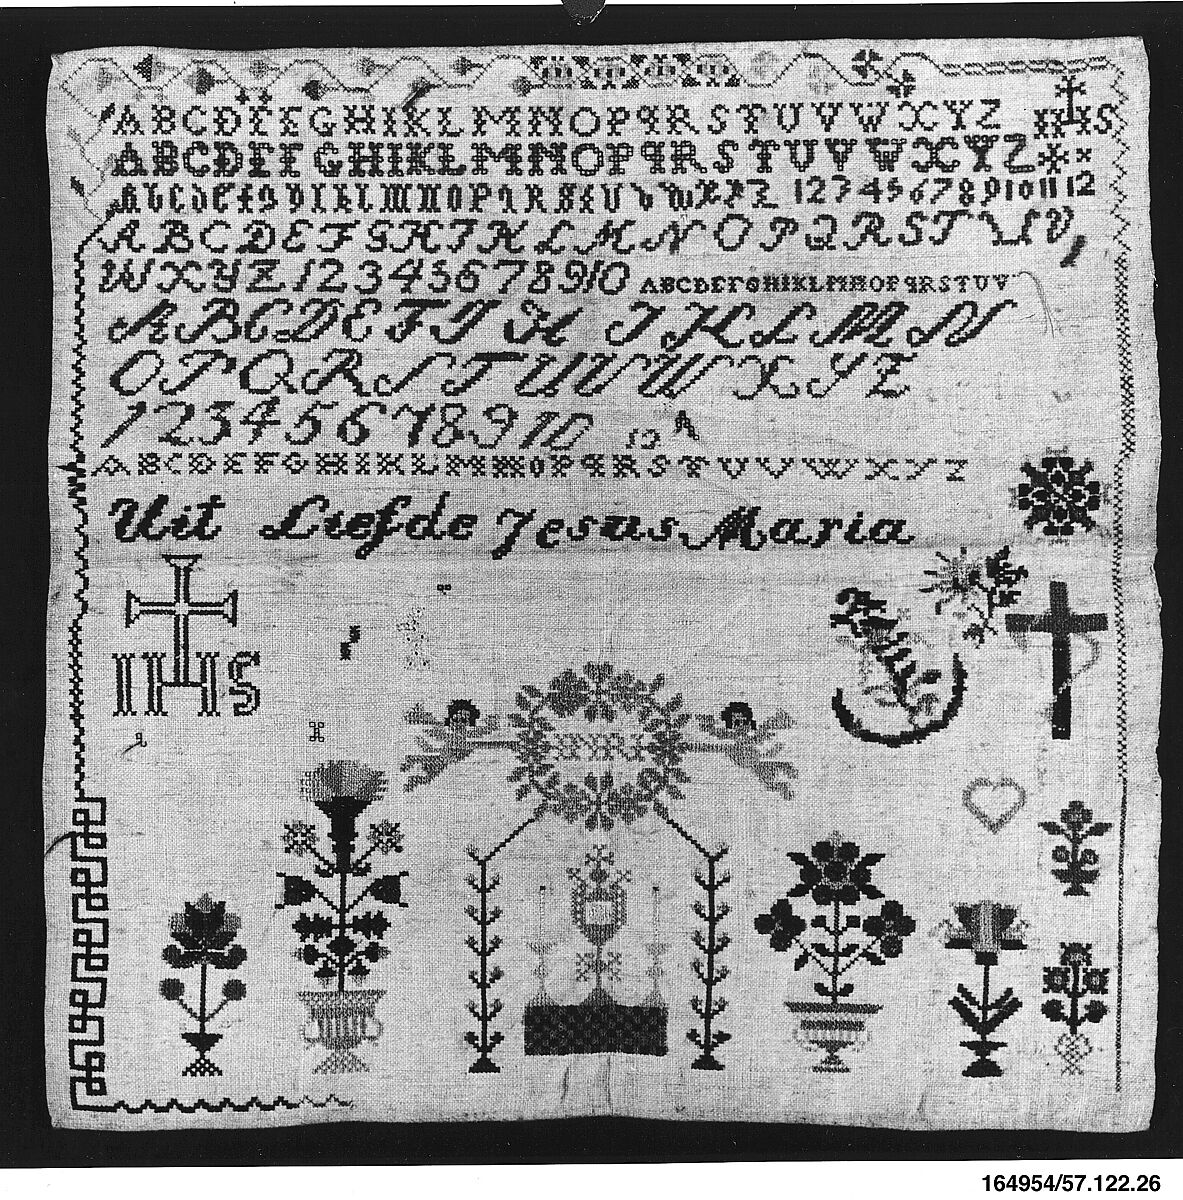 ABCDEFGHIKLMNOPQRSTUVWXYZ IHS
ABCDEFGHIKLMNOPQRSTUVWXYZ
1 2 3 4 5 6 7 8 9 10 11 12
ABCDEFGHIKLMNOPQRSTUV
WXYZ 12345678910 ABCDEFGHIKLMNOPQRSTUV
ABCDEFGHIKLMN
OPQRSTUVWXYZ
12345678910 10 A
ABCDEFGHIKLMNOPQRSTUVWXYZ
Uit Liefde Jesus Maria
IHS
164954/57.122.26